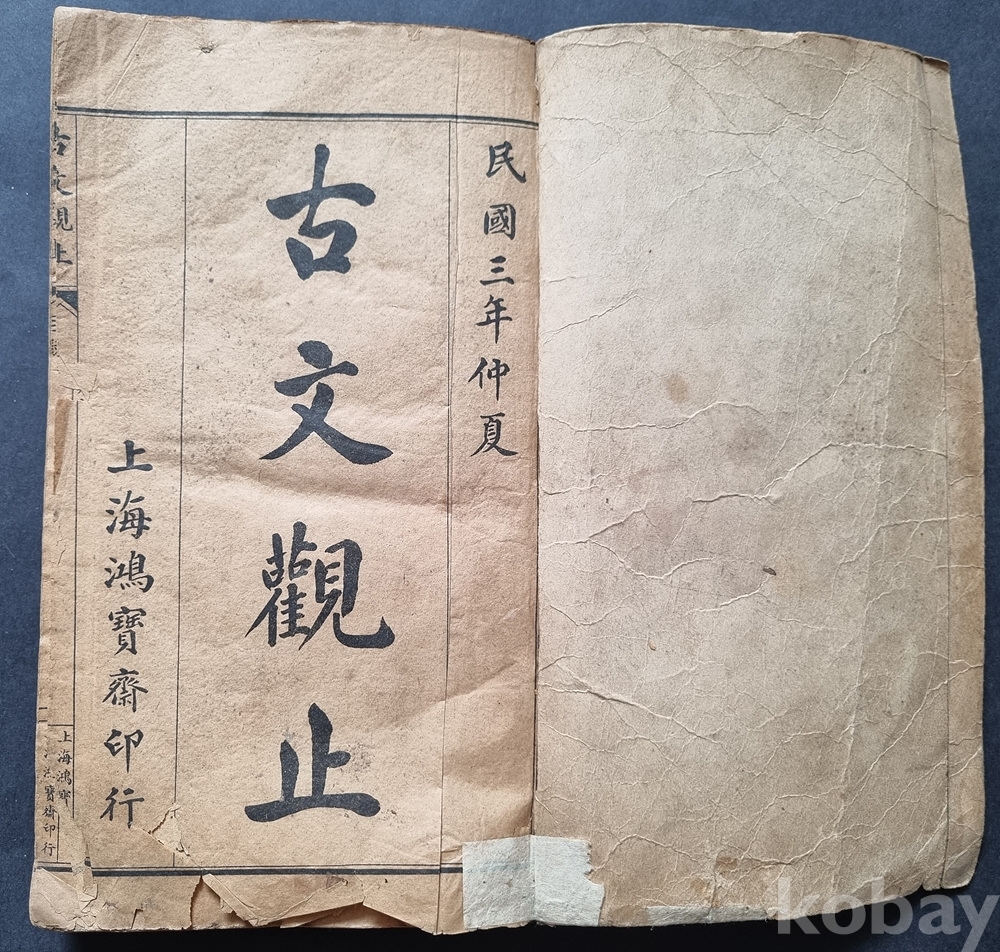 民國三年仲夏
古文觀止
上海鴻寶齋印行
古文觀止
上海鴻
寶齋印行
kobay